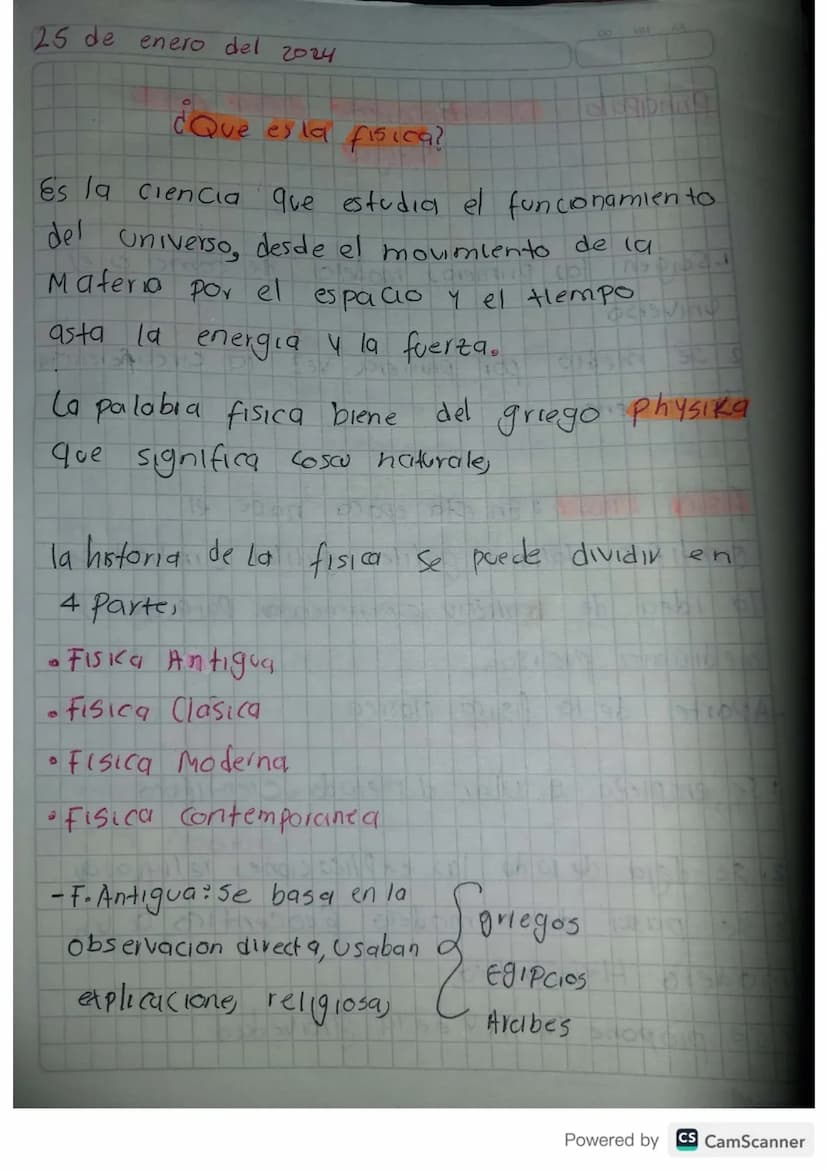 25 de enero del 2024
¿Que es la fisica?
Es la ciencia que estudia el funcionamiento
del universo, desde el movimiento de la
Materia por el espacio y el tiempo
asta la energia y la fuerza.
la palabra fisica biene del griego physika
que significa cosas naturales
la historia de la fisica se puede dividir en
4 Partes
• Fisika Antigua
• Fisica Clasica
• Fisica Moderna
• Fisica Contemporanea
- F. Antigua: se basa en la
observacion directa, usaban
explicaciones religiosas
griegos
Egipcios
Arabes
Powered by CS CamScanner